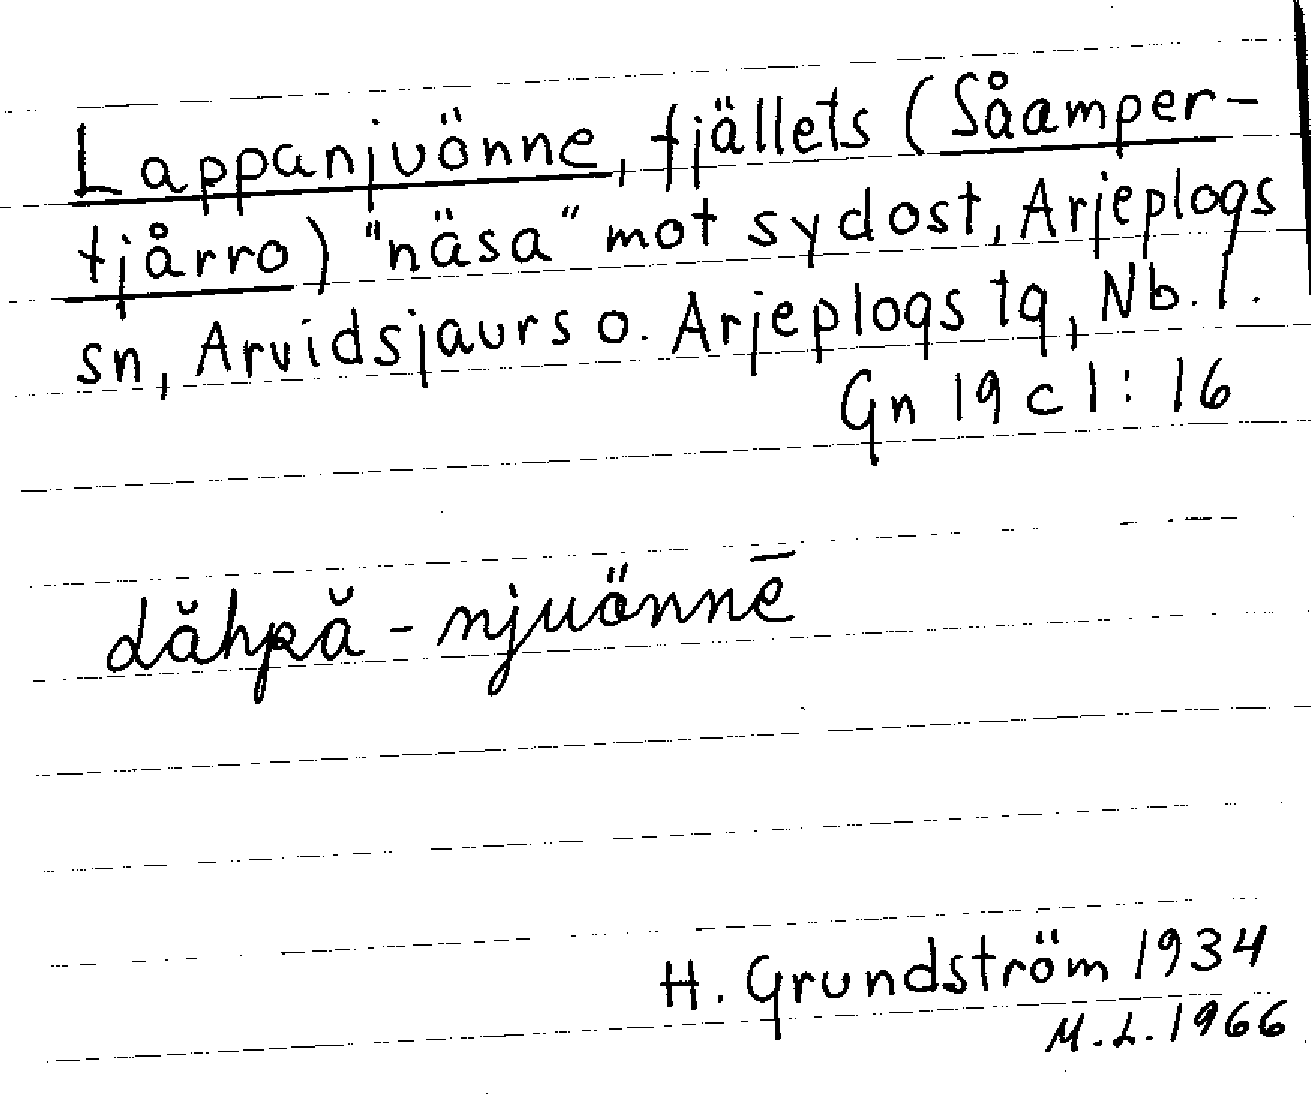 Lappanjuönne, fjällets (Såamper-
tjårro) "näsa" mot sydost, Arjeplogs
sn, Arvidsjaurs o. Arjeplogs tg, Nb. l.
Gn 19 c 1 : 16
dăhpă - njuönnē
H. Grundström 1934
M.L. 1966